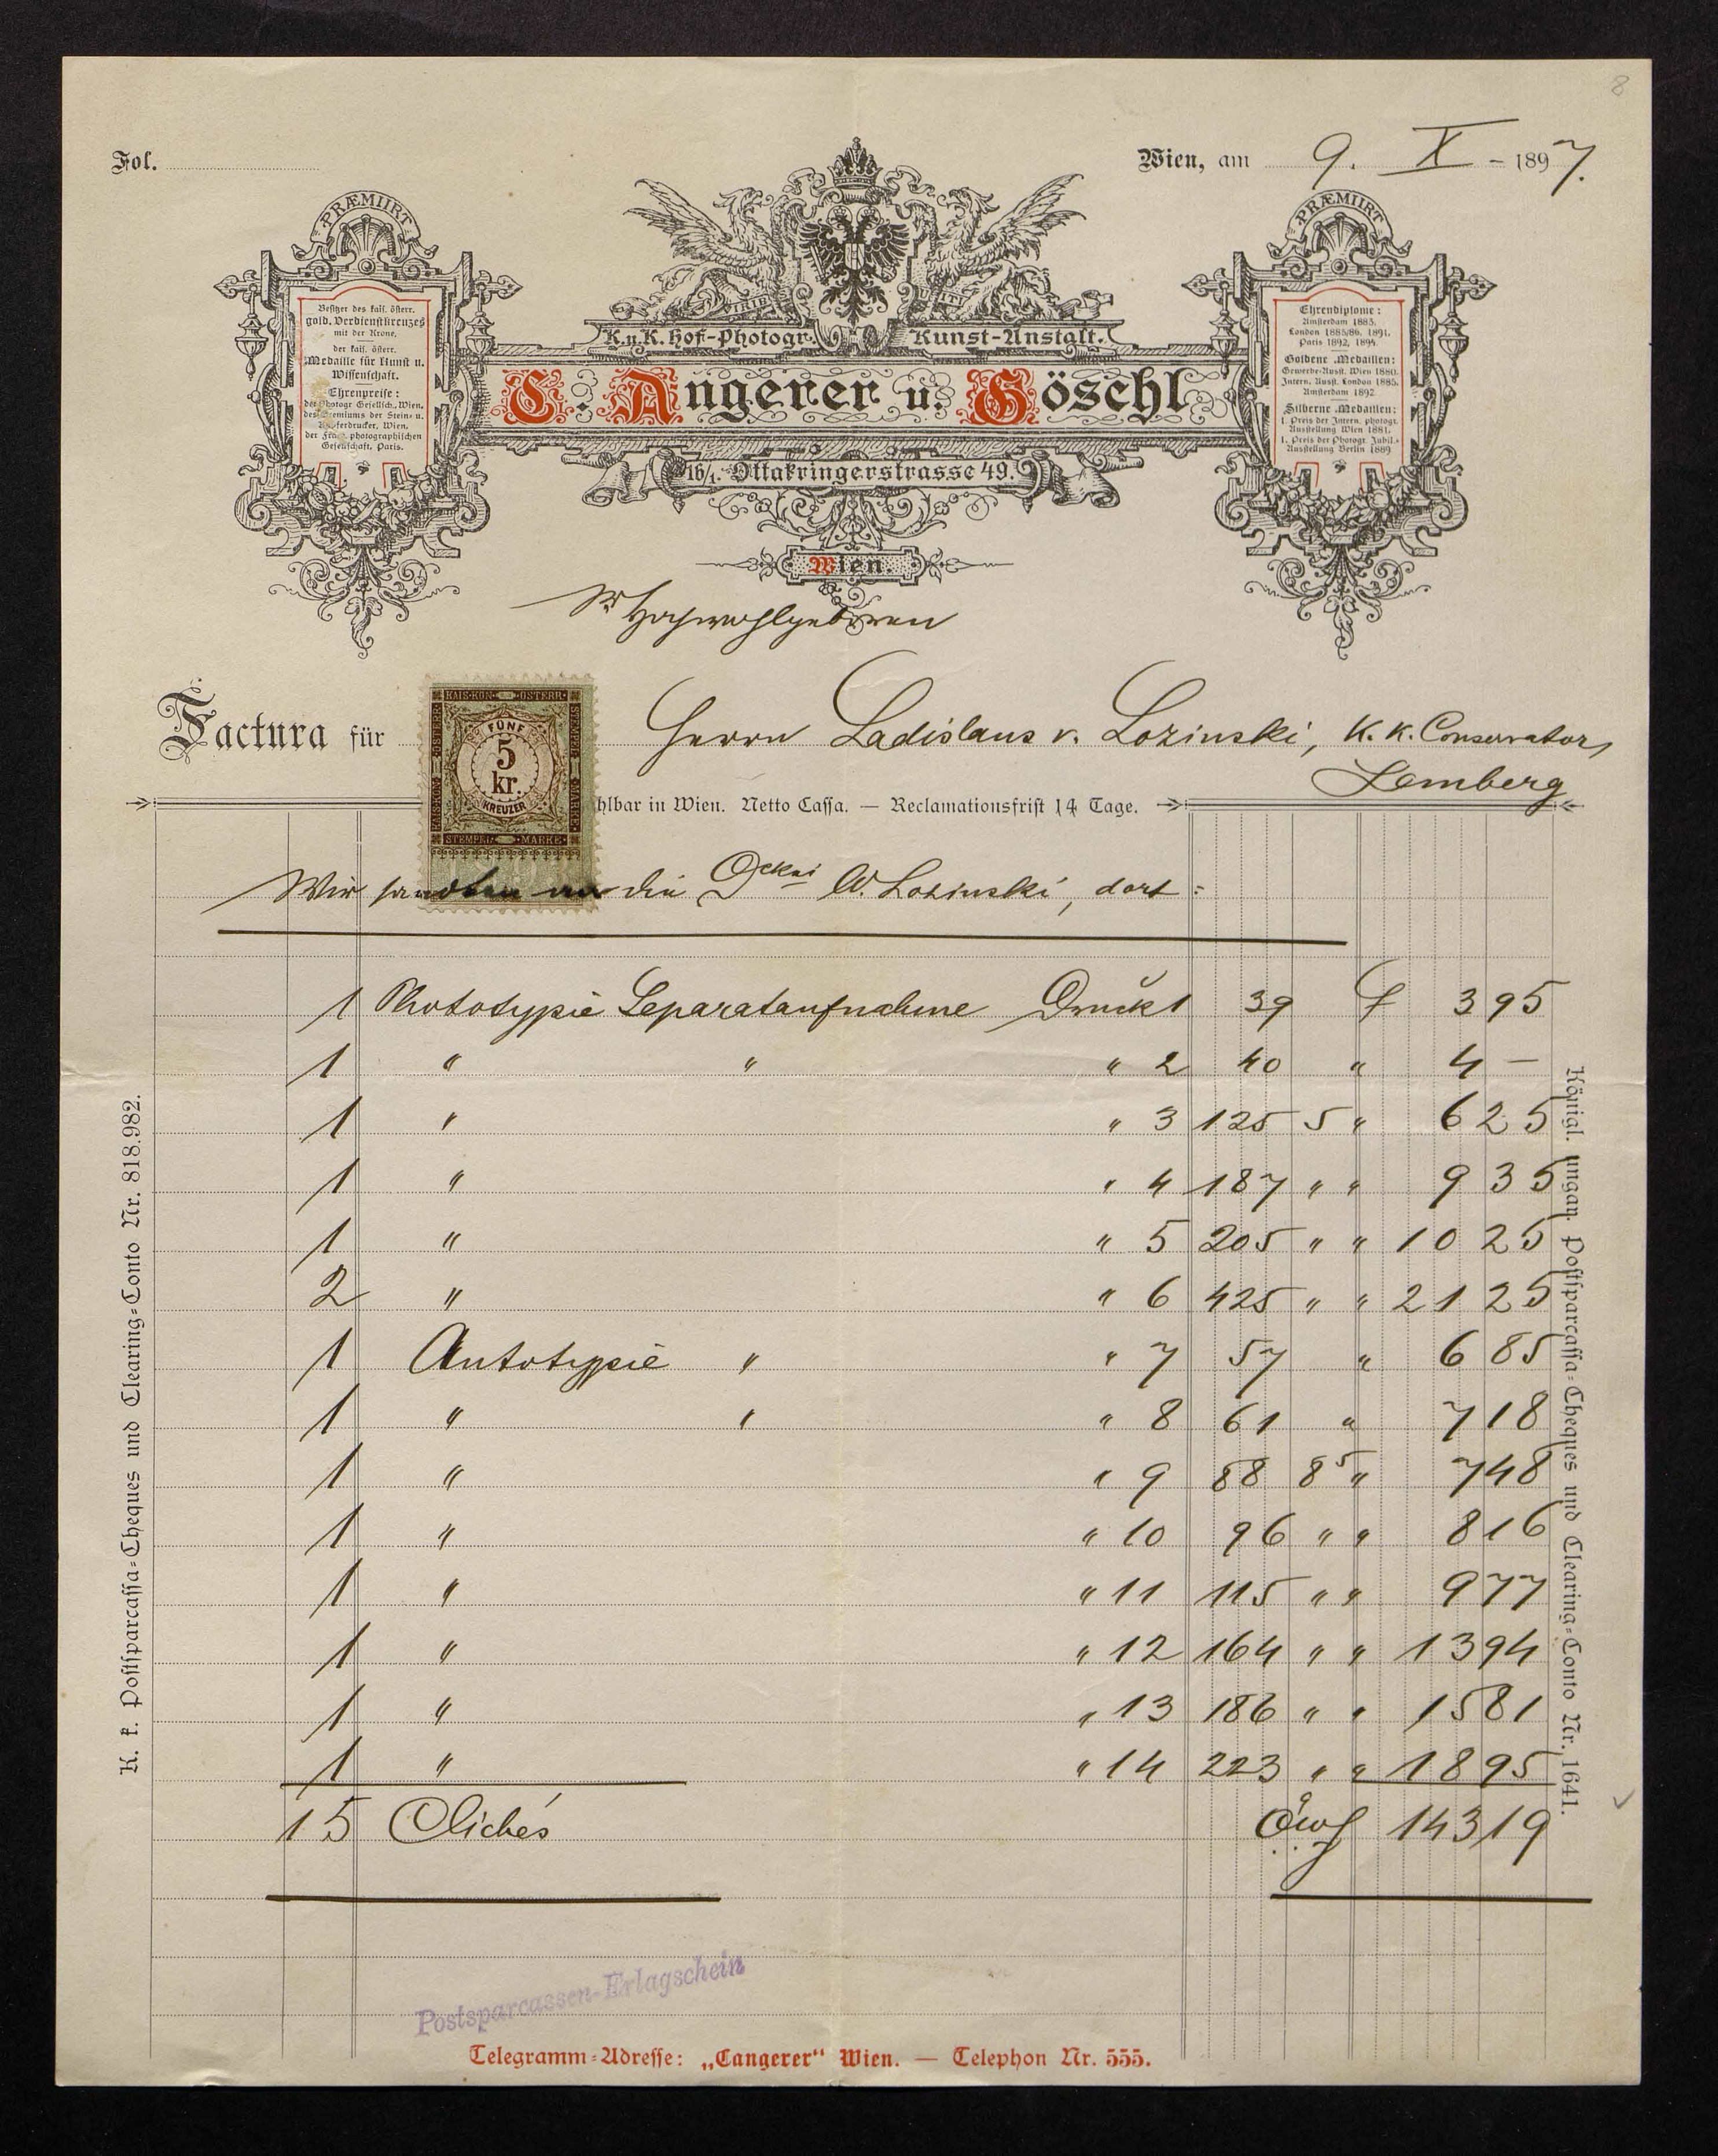 8
Fol.
Wien, am 9. X - 1897.
PRÆMIIRT
Besitzer des kais. österr.
gold. Verdienstkreuzes
mit der Krone,
der kais. österr.
Medaille für Kunst u.
Wissenschaft.
Ehrenpreise:
der Photogr Gesellsch., Wien,
des Gremiums der Stein- u.
Kupferdrucker, Wien,
der photographischen
Gesellschaft, Paris.
K.u.K. Hof-Photogr. Kunst-Anstalt.
C. Angerer u. Göschl
16/1. Ottakringerstrasse 49.
Wien.
PRÆMIIRT
Ehrendiplome:
Amsterdam 1883.
London 1885/86, 1891.
Paris 1892, 1894.
Goldene Medaillen:
Gewerbe-Ausst. Wien 1880.
Intern. Ausst. London 1885.
Amsterdam 1892
Silberne Medaillen:
I. Preis der Intern. photogr.
Ausstellung Wien 1881.
I. Preis der Photogr. Jubil.-
Ausstellung Berlin 1889
Sr Hochwohlgeboren
Factura für Herrn Ladislaus v. Lozinski, K. K. Conservator,
Lemberg
KAIS. KÖN. ÖSTERR.
FÜNF
5
kr.
KREUZER
STEMPEL MARKE
hlbar in Wien. Netto Cassa. — Reclamationsfrist 14 Tage.
Wir sandten an die W. Lozinski, dort:
1 Phototypie Separataufnahme Druck 1 39 f 3 95
1 " " " 2 40 " 4 –
1 " " 3 125 5 " 6 25
1 " " 4 187 " " 9 35
1 " " 5 205 " " 10 25
2 " " 6 425 " " 21 25
1 Autotypie " " 7 57 " 6 85
1 " " " 8 61 " 7 18
1 " " 9 88 8 5 " 7 48
1 " " 10 96 " " 8 16
1 " " 11 115 " " 9 77
1 " " 12 164 " " 13 94
1 " " 13 186 " " 15 81
1 " " 14 223 " " 18 95
15 Clichés öwf 143 19
K. k. Postsparcassa-Cheques und Clearing-Conto Nr. 818.982.
Königl. ungar. Postsparcassa-Cheques und Clearing-Conto Nr. 1641.
Postsparcassen-Erlagschein
Telegramm-Adresse: „Cangerer“ Wien. — Telephon Nr. 555.